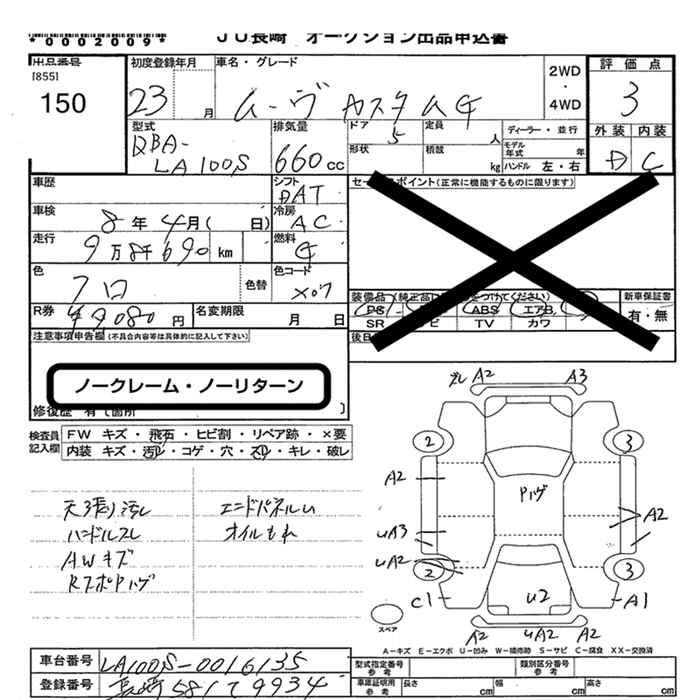 *0002009* JU長崎 オークション出品申込書
出品番号 初度登録年月 車名・グレード 2WD・4WD 評価点
[855]
150 23 月 ムーヴ カスタム G 3
型式 排気量 ドア 定員 ディーラー・並行 外装 内装
QBA- 5 人 モデル年式 年
LA100S 660cc 形状 積載 kg ハンドル 左・右 D C
車歴 シフト セールスポイント(正常に機能するものに限ります)
DAT
車検 8年4月( 日) 冷房 AC
走行 9万8千690km 燃料 G
色 クロ 色替 色コード X07
装備品(純正品 をつけてください) 新車保証書
PS ABS エアB 有・無
SR TV カワ
R券 円 名変期限 月 日
注意事項申告欄(不具合内容等は具体的に記入して下さい)
ノークレーム・ノーリターン
修復歴 有〔箇所 〕
検査員記入欄 FW キズ・飛石・ヒビ割・リペア跡・×要
内装 キズ・汚レ・コゲ・穴・スレ・キレ・破レ
天張り汚レ エンドパネルU
ハンドルスレ オイルもれ
AWキズ
RスポPハゲ
ズレ A2 A3
2 3
A2 Pハゲ
UA3 A2
UA2
2 3
C1 U2 A1
スペア A2 UA2 A2
A-キズ E-エクボ U-凹み W-補修跡 S-サビ C-腐食 XX-交換済
車台番号 LA100S-0016135 型式指定番号 参考 類別区分番号 参考
登録番号 長崎581 9934 車庫証明用 参考 長さ cm 幅 cm 高さ cm